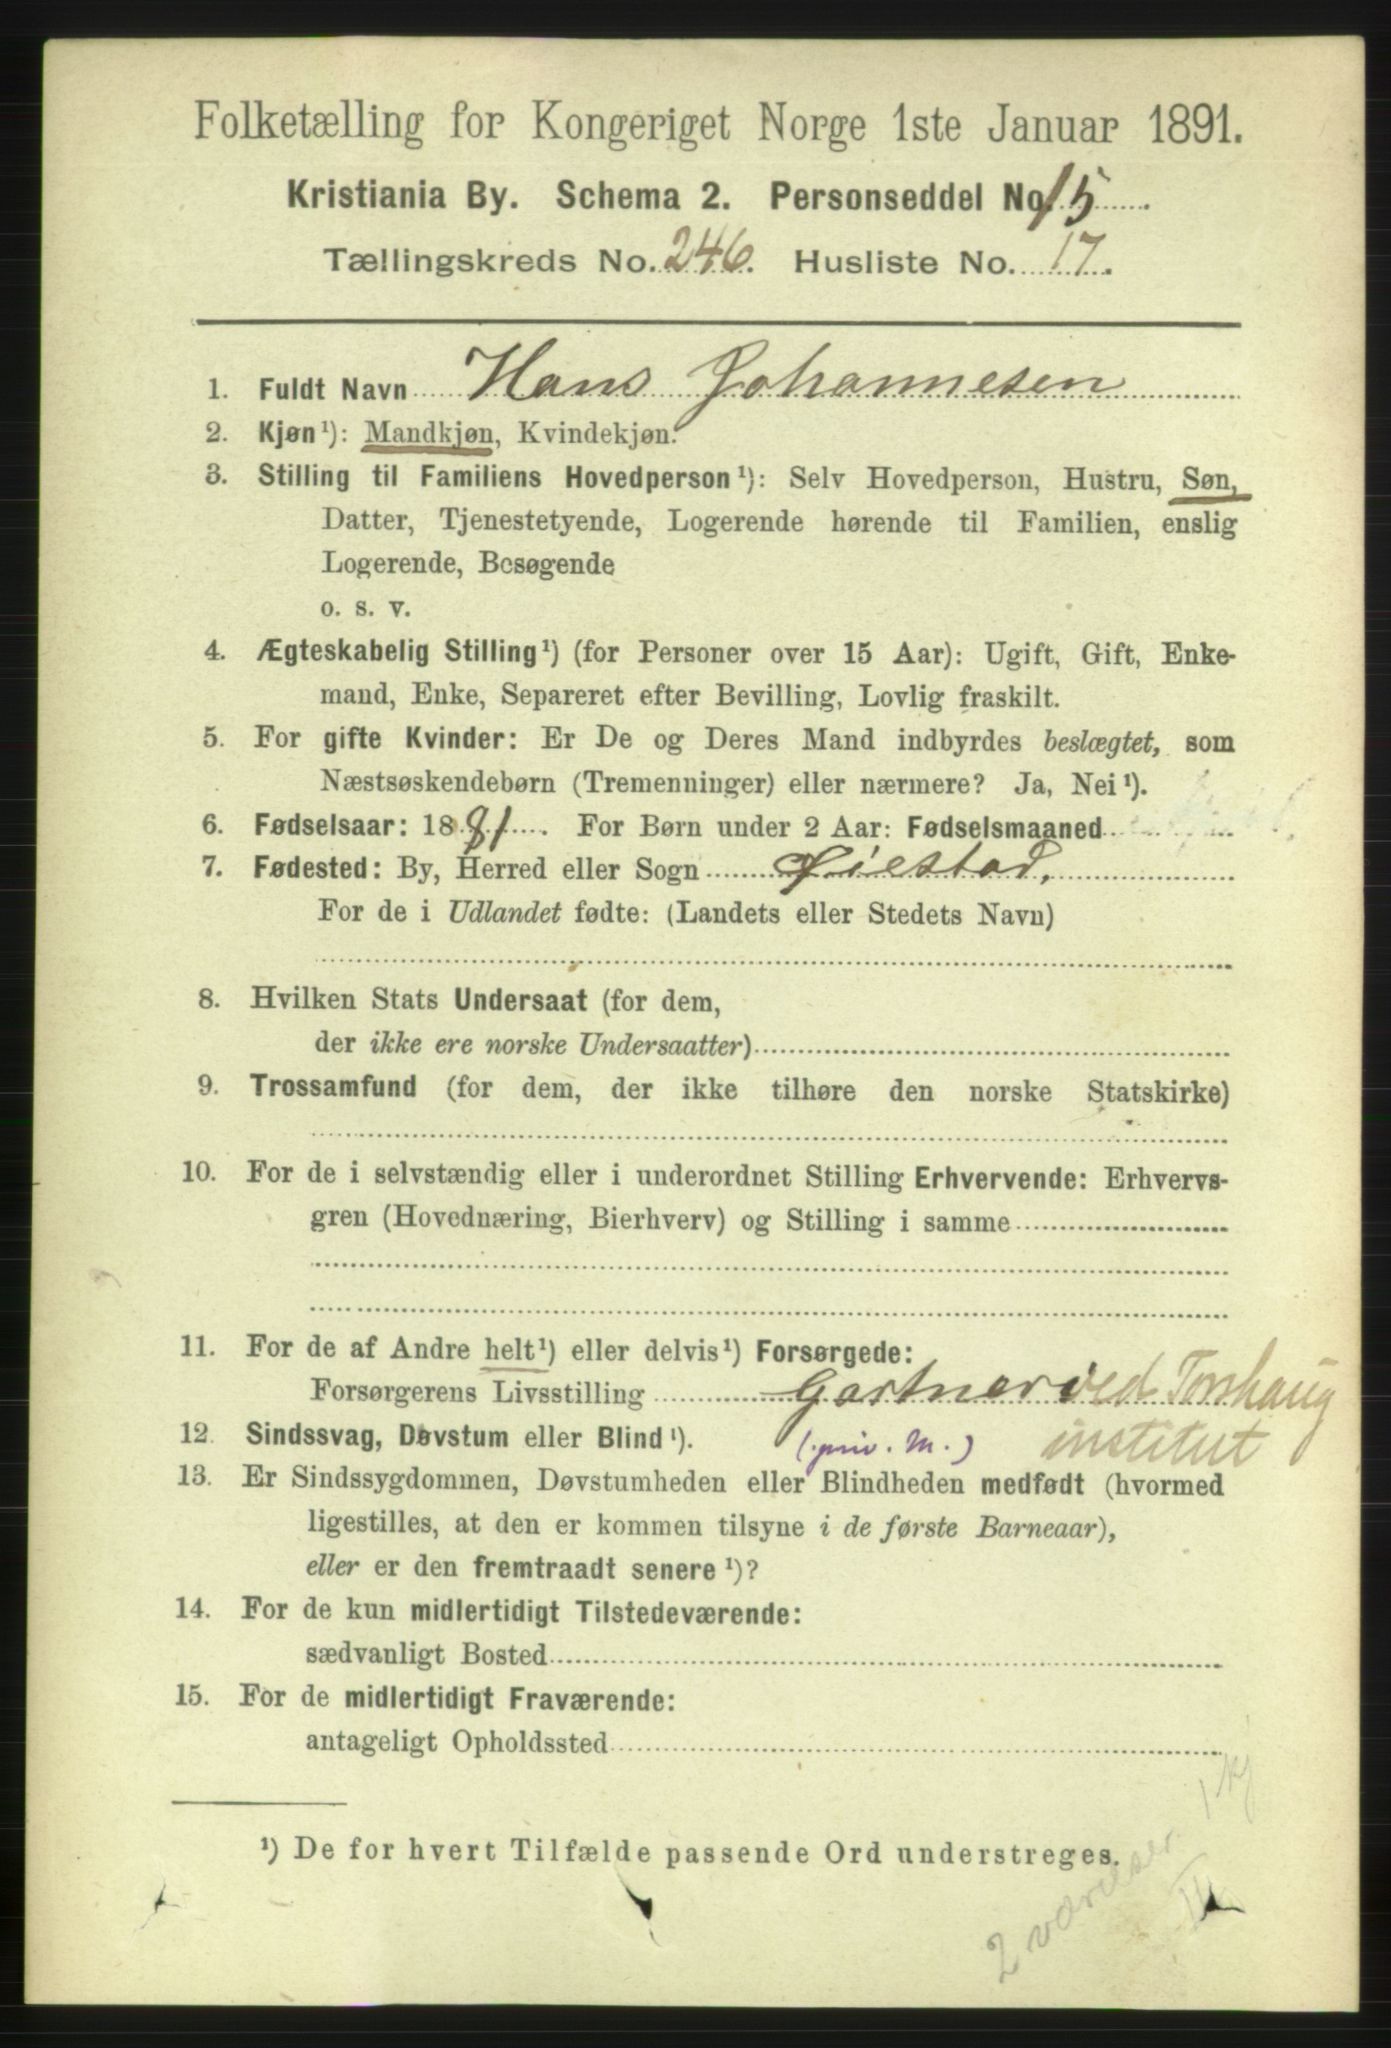 Folketælling for Kongeriget Norge 1ste Januar 1891.
Kristiania By. Schema 2. Personseddel No. 15
Tællingskreds No. 246. Husliste No. 17.
1. Fuldt Navn Hans Johannesen
2. Kjøn¹): Mandkjøn, Kvindekjøn.
3. Stilling til Familiens Hovedperson¹): Selv Hovedperson, Hustru, Søn,
Datter, Tjenestetyende, Logerende hørende til Familien, enslig
Logerende, Besøgende
o. s. v.
4. Ægteskabelig Stilling¹) (for Personer over 15 Aar): Ugift, Gift, Enke-
mand, Enke, Separeret efter Bevilling, Lovlig fraskilt.
5. For gifte Kvinder: Er De og Deres Mand indbyrdes beslægtet, som
Næstsøskendebørn (Tremenninger) eller nærmere? Ja, Nei¹).
6. Fødselsaar: 1881. For Børn under 2 Aar: Fødselsmaaned
7. Fødested: By, Herred eller Sogn Øiestad.
For de i Udlandet fødte: (Landets eller Stedets Navn)
8. Hvilken Stats Undersaat (for dem,
der ikke ere norske Undersaatter)
9. Trossamfund (for dem, der ikke tilhøre den norske Statskirke)
10. For de i selvstændig eller i underordnet Stilling Erhvervende: Erhvervs-
gren (Hovednæring, Bierhverv) og Stilling i samme
11. For de af Andre helt¹) eller delvis¹) Forsørgede:
Forsørgerens Livsstilling Gartner ved Torshaug
12. Sindssvag, Døvstum eller Blind¹). (priv. M.) institut
13. Er Sindssygdommen, Døvstumheden eller Blindheden medfødt (hvormed
ligestilles, at den er kommen tilsyne i de første Barneaar),
eller er den fremtraadt senere¹)?
14. For de kun midlertidigt Tilstedeværende:
sædvanligt Bosted
15. For de midlertidigt Fraværende:
antageligt Opholdssted
¹) De for hvert Tilfælde passende Ord understreges.
2 værelser 1 kj
III